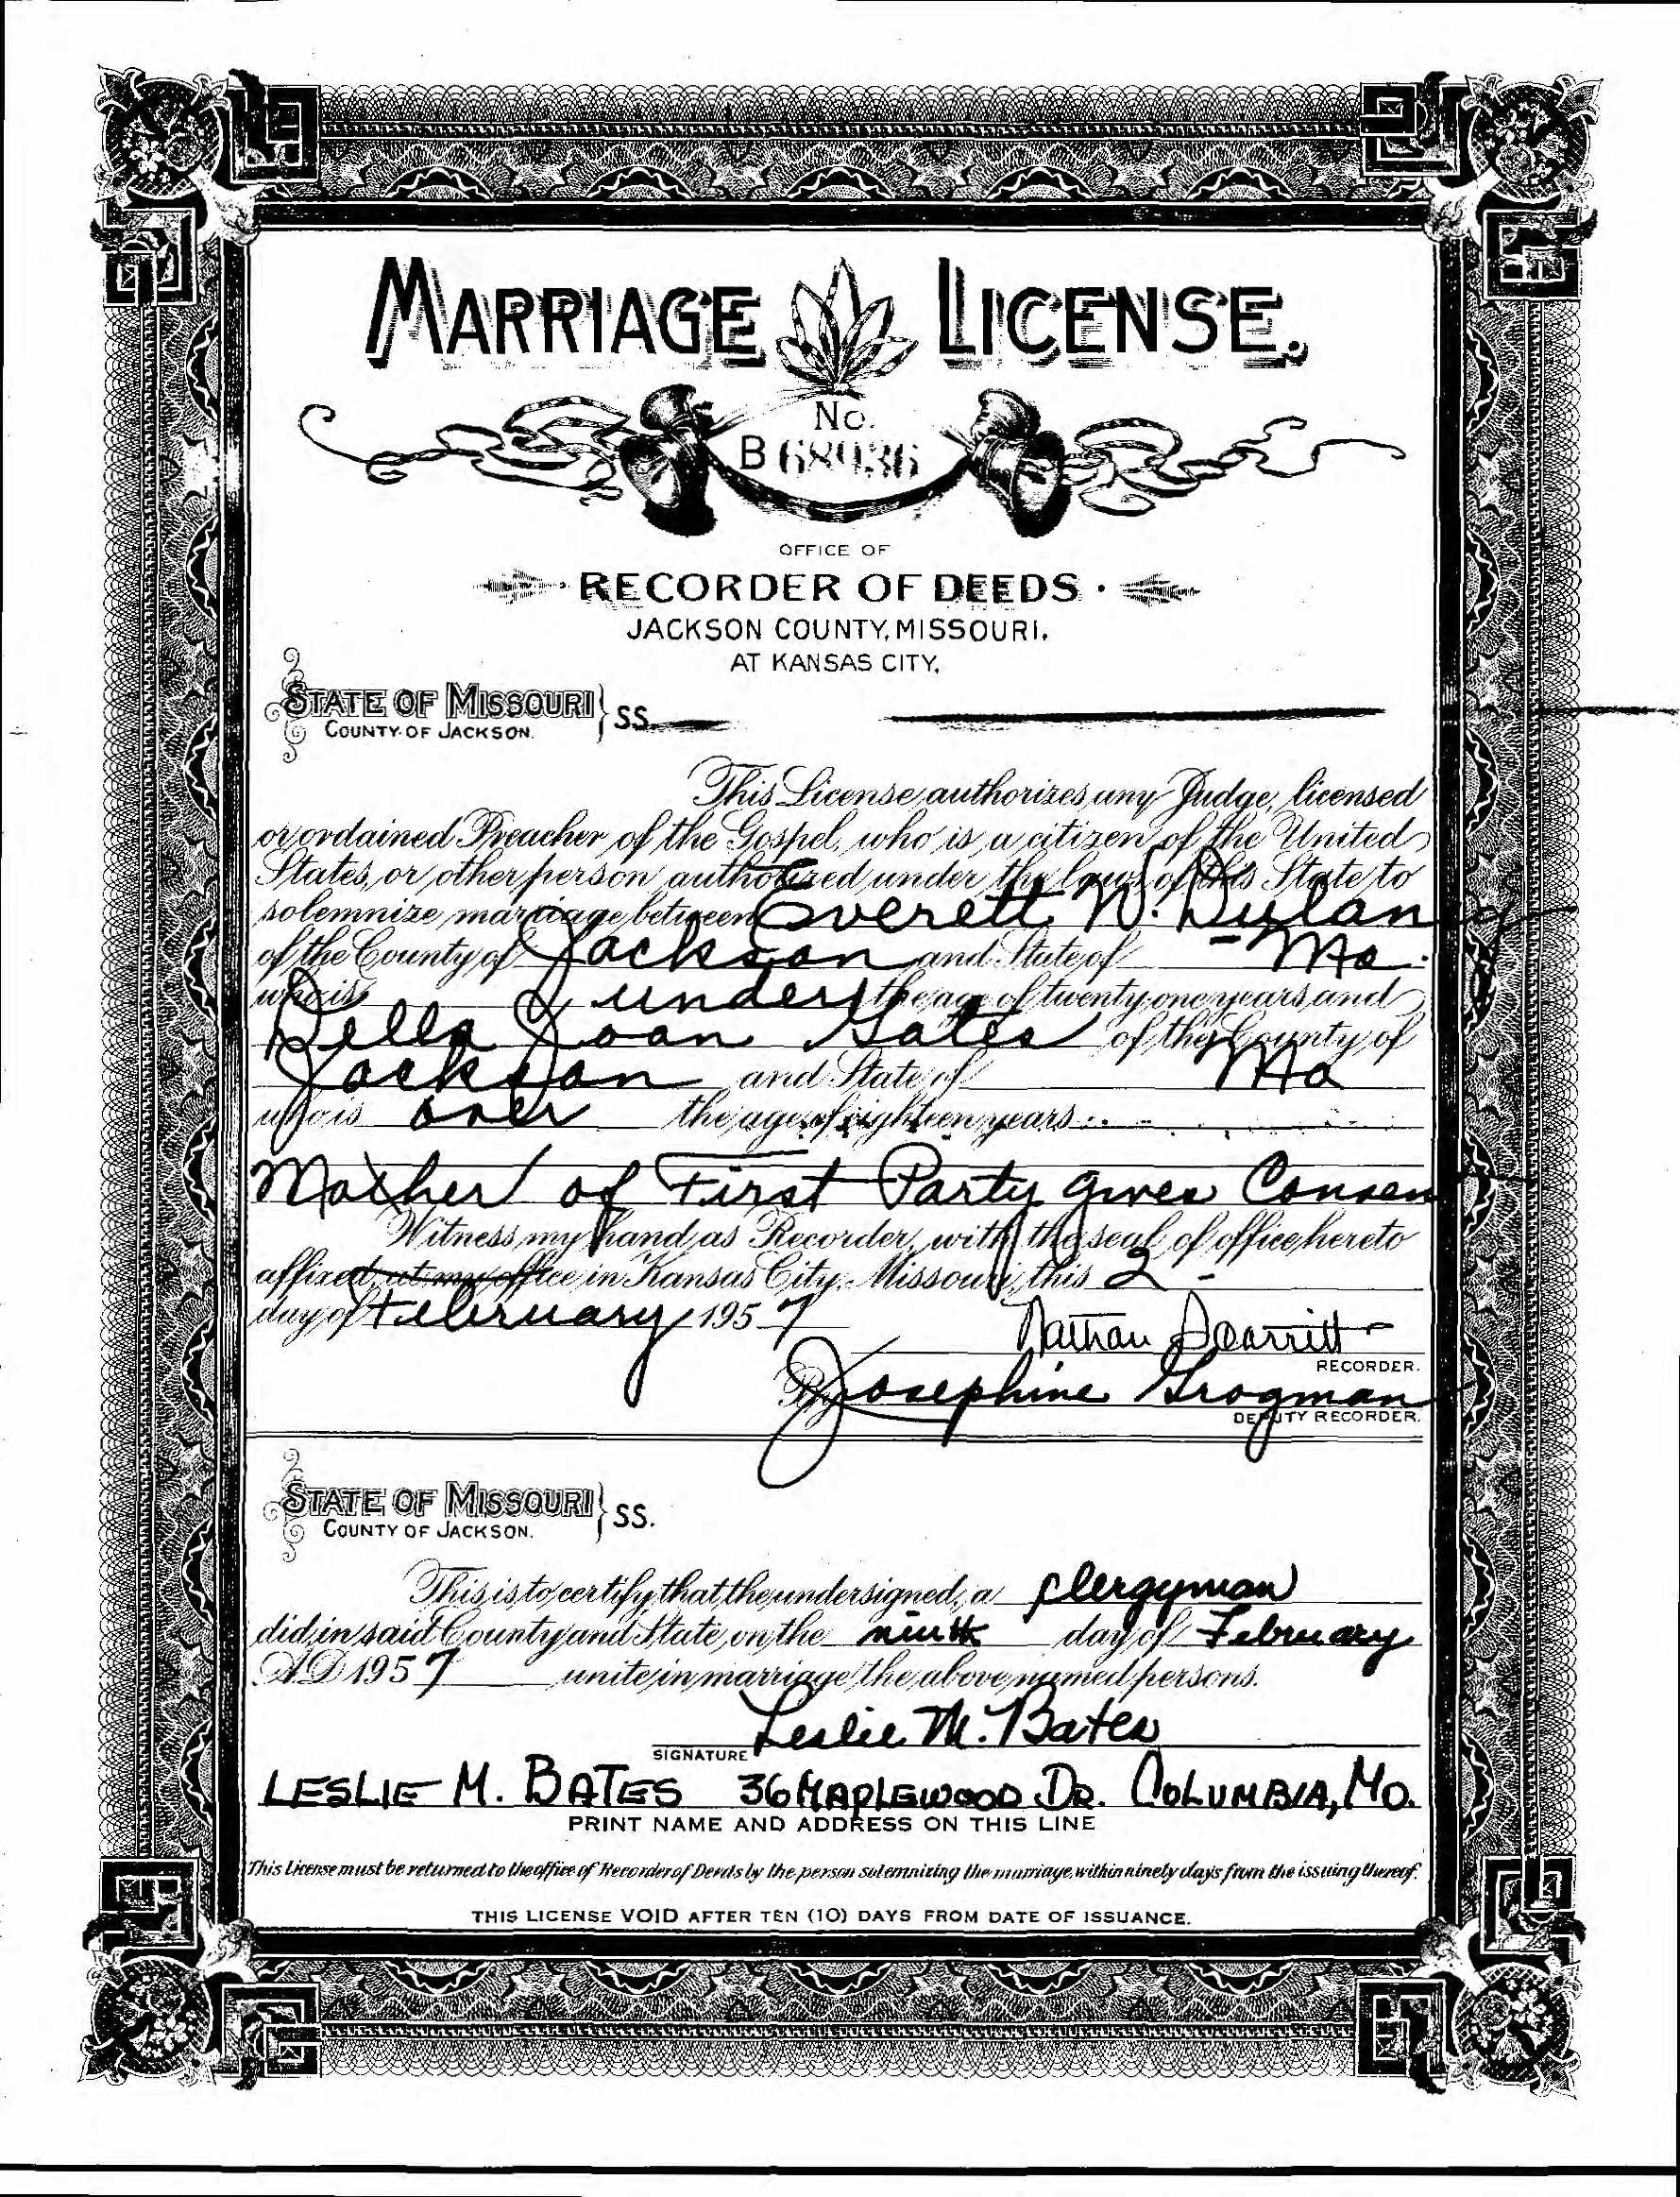 MARRIAGE LICENSE.
No.
B 68936
OFFICE OF
RECORDER OF DEEDS.
JACKSON COUNTY, MISSOURI.
AT KANSAS CITY.
STATE OF MISSOURI
COUNTY OF JACKSON.
SS.
This License authorizes any Judge, licensed
or ordained Preacher of the Gospel, who is a citizen of the United
States, or other person authorized under the laws of this State to
solemnize marriage between Everett W. Dylan
of the County of Jackson and State of - Mo.
who is under the age of twenty one years and
Della Joan Gates of the County of
Jackson and State of Mo
who is over the age of eighteen years
Mother of First Party gives Consen
Witness my hand as Recorder, with the seal of office hereto
affixed, at my office in Kansas City, Missouri, this 2 -
day of February 1957
Nathan Scarritt
RECORDER.
By Josephine Grogman
DEPUTY RECORDER.
STATE OF MISSOURI
COUNTY OF JACKSON.
SS.
This is to certify that the undersigned, a clergyman
did in said County and State, on the ninth day of February
A.D. 1957 unite in marriage the above named persons.
Leslie M. Bates
SIGNATURE
LESLIE M. BATES 36 MAPLEWOOD DR. COLUMBIA, MO.
PRINT NAME AND ADDRESS ON THIS LINE
This License must be returned to the office of Recorder of Deeds by the person solemnizing the marriage, within ninety days from the issuing thereof.
THIS LICENSE VOID AFTER TEN (10) DAYS FROM DATE OF ISSUANCE.